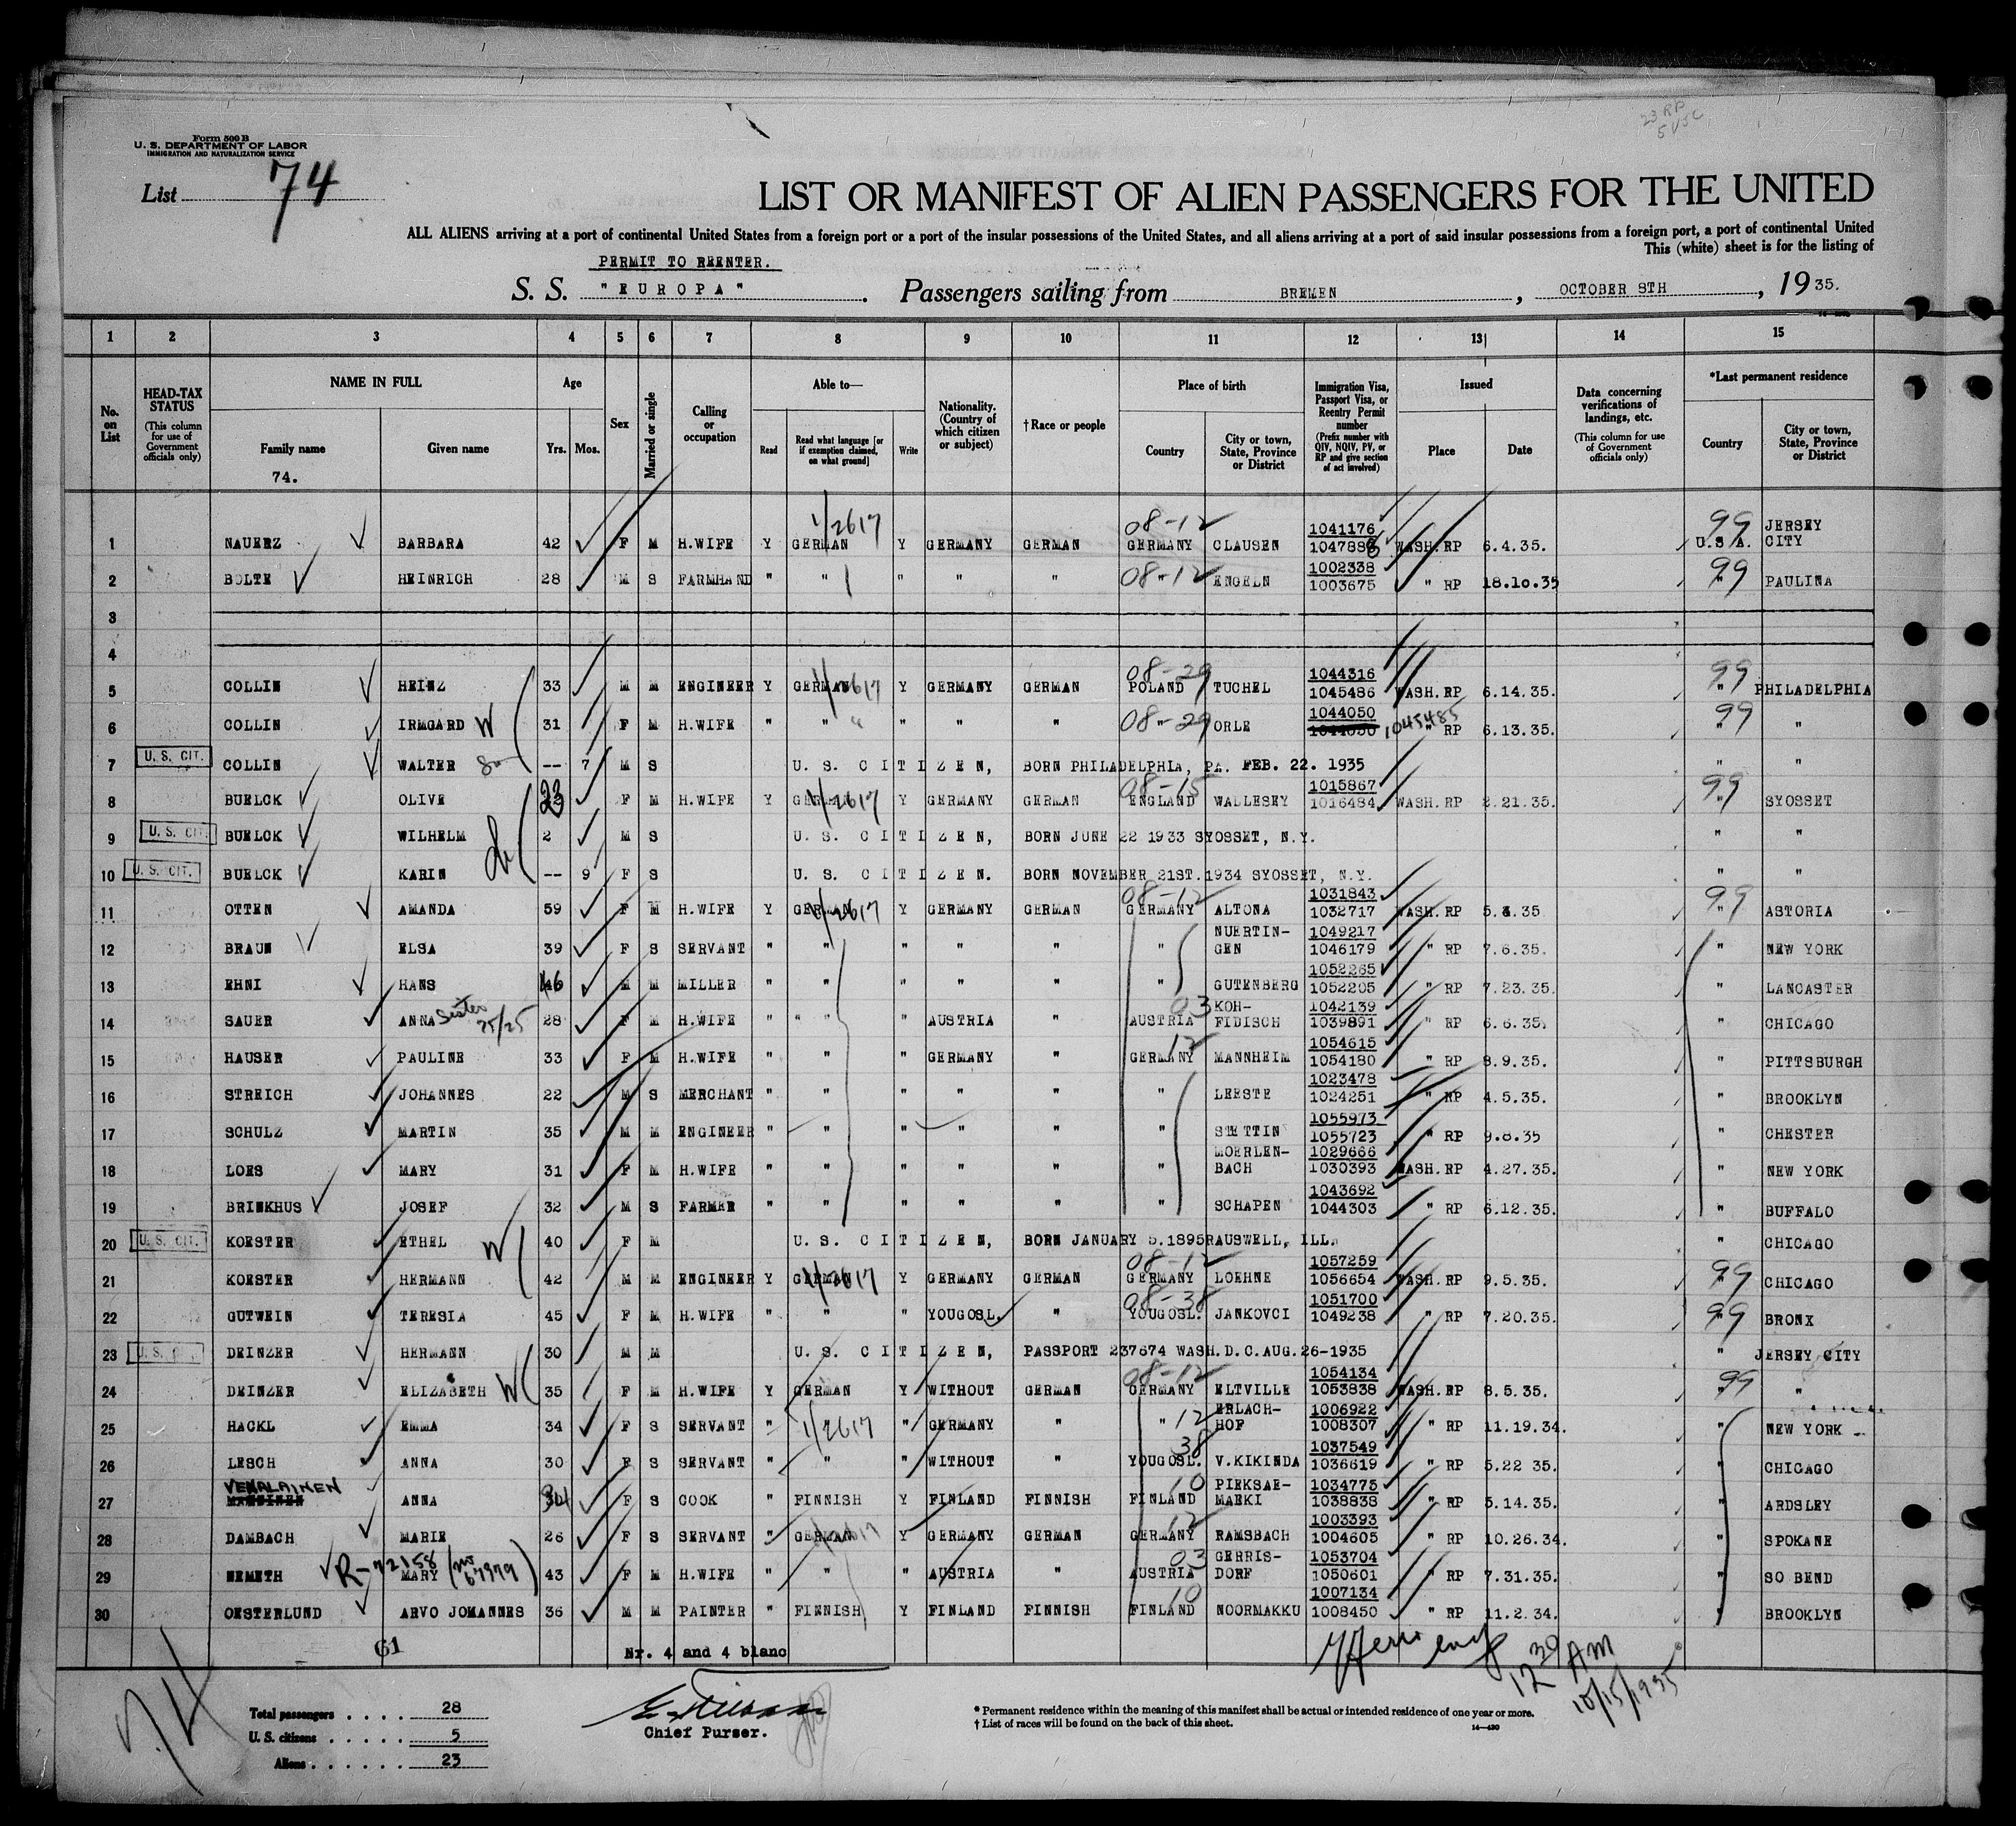 23 RP
5 USC
Form 500 B
U. S. DEPARTMENT OF LABOR
IMMIGRATION AND NATURALIZATION SERVICE
List 74
LIST OR MANIFEST OF ALIEN PASSENGERS FOR THE UNITED
ALL ALIENS arriving at a port of continental United States from a foreign port or a port of the insular possessions of the United States, and all aliens arriving at a port of said insular possessions from a foreign port, a port of continental United
This (white) sheet is for the listing of
PERMIT TO REENTER.
S. S. "EUROPA". Passengers sailing from BREMEN, OCTOBER 9TH, 1935.
1 2 3 4 5 6 7 8 9 10 11 12 13 14 15
No. on List
HEAD-TAX STATUS (This column for use of Government officials only)
NAME IN FULL
Family name
Given name
74.
Age
Yrs. Mos.
Sex
Married or single
Calling or occupation
Able to—
Read
Read what language [or if exemption claimed, on what ground]
Write
Nationality. (Country of which citizen or subject)
†Race or people
Place of birth
Country
City or town, State, Province or District
Immigration Visa, Passport Visa, or Reentry Permit number (Prefix number with QIV, NQIV, PV, or RP and give section of act involved)
Issued
Place
Date
Data concerning verifications of landings, etc. (This column for use of Government officials only)
*Last permanent residence
Country
City or town, State, Province or District
1 NAUERZ BARBARA 42 F M H.WIFE Y GERMAN 1/2617 Y GERMANY GERMAN 08-12 GERMANY CLAUSEN 1041176 1047888 WASH. RP 6.4.35. 99 U.S.A. JERSEY CITY
2 BOLTE HEINRICH 28 M S FARMHAND " " " " " 08-12 " ENGELN 1002338 1003675 " RP 18.10.35 99 " PAULINA
3
4
5 COLLIN HEINZ 33 M M ENGINEER Y GERMAN 1/2617 Y GERMANY GERMAN 08-29 POLAND TUCHEL 1044316 1045486 WASH. RP 6.14.35. 99 " PHILADELPHIA
6 COLLIN IRMGARD W 31 F M H.WIFE " " " " " 08-29 " ORLE 1044050 1045485 " RP 6.13.35. 99 " "
7 U. S. CIT. COLLIN WALTER So -- 7 M S U. S. CITIZEN, BORN PHILADELPHIA, PA. FEB. 22. 1935 " "
8 BUELCK OLIVE 23 F M H.WIFE Y GERMAN 1/2617 Y GERMANY GERMAN 08-15 ENGLAND WALLESEY 1015867 1016484 WASH. RP 2.21.35. 99 " SYOSSET
9 U. S. CIT. BUELCK WILHELM 2 M S U. S. CITIZEN, BORN JUNE 22 1933 SYOSSET, N.Y. " "
10 U. S. CIT. BUELCK KARIN -- 9 F S U. S. CITIZEN. BORN NOVEMBER 21ST.1934 SYOSSET, N.Y. " "
11 OTTEN AMANDA 59 F M H.WIFE Y GERMAN 1/2617 Y GERMANY GERMAN 08-12 GERMANY ALTONA 1031843 1032717 WASH. RP 5.8.35 99 " ASTORIA
12 BRAUN ELSA 39 F S SERVANT " " " " " " NUERTIN-GEN 1049217 1046179 " RP 7.6.35. " NEW YORK
13 EHNI HANS 46 M M MILLER " " " " " " GUTENBERG 1052265 1052205 " RP 7.23.35. " LANCASTER
14 SAUER ANNA Sister 25/25 28 F M H.WIFE " " " AUSTRIA " 03 AUSTRIA KOH-FIDISCH 1042139 1039891 " RP 6.6.35. " CHICAGO
15 HAUSER PAULINE 33 F M H.WIFE " " " GERMANY " 12 GERMANY MANNHEIM 1054615 1054180 " RP 8.9.35. " PITTSBURGH
16 STREICH JOHANNES 22 M S MERCHANT " " " " " " LEESTE 1023478 1024251 " RP 4.5.35. " BROOKLYN
17 SCHULZ MARTIN 35 M M ENGINEER " " " " " " STETTIN 1055973 1055723 " RP 9.6.35 " CHESTER
18 LOES MARY 31 F M H.WIFE " " " " " " MOERLEN-BACH 1029666 1030393 WASH. RP 4.27.35. " NEW YORK
19 BRINKHUS JOSEF 32 M S FARMER " " " " " " SCHAPEN 1043692 1044303 " RP 6.12.35. " BUFFALO
20 U. S. CIT. KOESTER ETHEL W 40 F M U. S. CITIZEN, BORN JANUARY 5.1895 RAUSWELL, ILL. " CHICAGO
21 KOESTER HERMANN 42 M M ENGINEER Y GERMAN 1/2617 Y GERMANY GERMAN 08-12 GERMANY LOEHNE 1057259 1056654 WASH. RP 9.5.35. 99 " CHICAGO
22 GUTWEIN TERESIA 45 F M H.WIFE " " " YOUGOSL. " 08-38 YOUGOSL. JANKOVCI 1051700 1049238 " RP 7.20.35. 99 " BRONX
23 U. S. CIT. DEINZER HERMANN 30 M M U. S. CITIZEN, PASSPORT 237674 WASH.D.C.AUG.26-1935 " JERSEY CITY
24 DEINZER ELIZABETH W 35 F M H.WIFE Y GERMAN Y WITHOUT GERMAN 08-12 GERMANY ELTVILLE 1054134 1053838 WASH. RP 8.5.35. 99 " "
25 HACKL EMMA 34 F S SERVANT " 1/2617 " GERMANY " " 12 ERLACH-HOF 1006922 1008307 " RP 11.19.34. " NEW YORK
26 LESCH ANNA 30 F S SERVANT " " " WITHOUT " 38 YOUGOSL. V.KIKINDA 1037549 1036619 " RP 5.22 35. " CHICAGO
27 VENALAINEN ANNA 34 F S COOK " FINNISH Y FINLAND FINNISH 10 FINLAND PIEKSAE-MAEKI 1034775 1038838 " RP 5.14.35. " ARDSLEY
28 DAMBACH MARIE 26 F S SERVANT " GERMAN 1/2617 Y GERMANY GERMAN 12 GERMANY RAMSBACH 1003393 1004605 " RP 10.26.34. " SPOKANE
29 NEMETH R-72158 MARY 43 F M H.WIFE " " " AUSTRIA " 03 AUSTRIA GERRIS-DORF 1053704 1050601 " RP 7.31.35. " SO BEND
30 OESTERLUND ARVO JOHANNES 36 M M PAINTER " FINNISH Y FINLAND FINNISH 10 FINLAND NOORMAKKU 1007134 1008450 " RP 11.2.34. " BROOKLYN
61
Nr. 4 and 4 blanc
12 30 AM
10/15/1935
74
Total passengers . . . . 28
U. S. citizens . . . . . 5
Aliens . . . . . . 23
Chief Purser.
* Permanent residence within the meaning of this manifest shall be actual or intended residence of one year or more.
† List of races will be found on the back of this sheet.
14—430